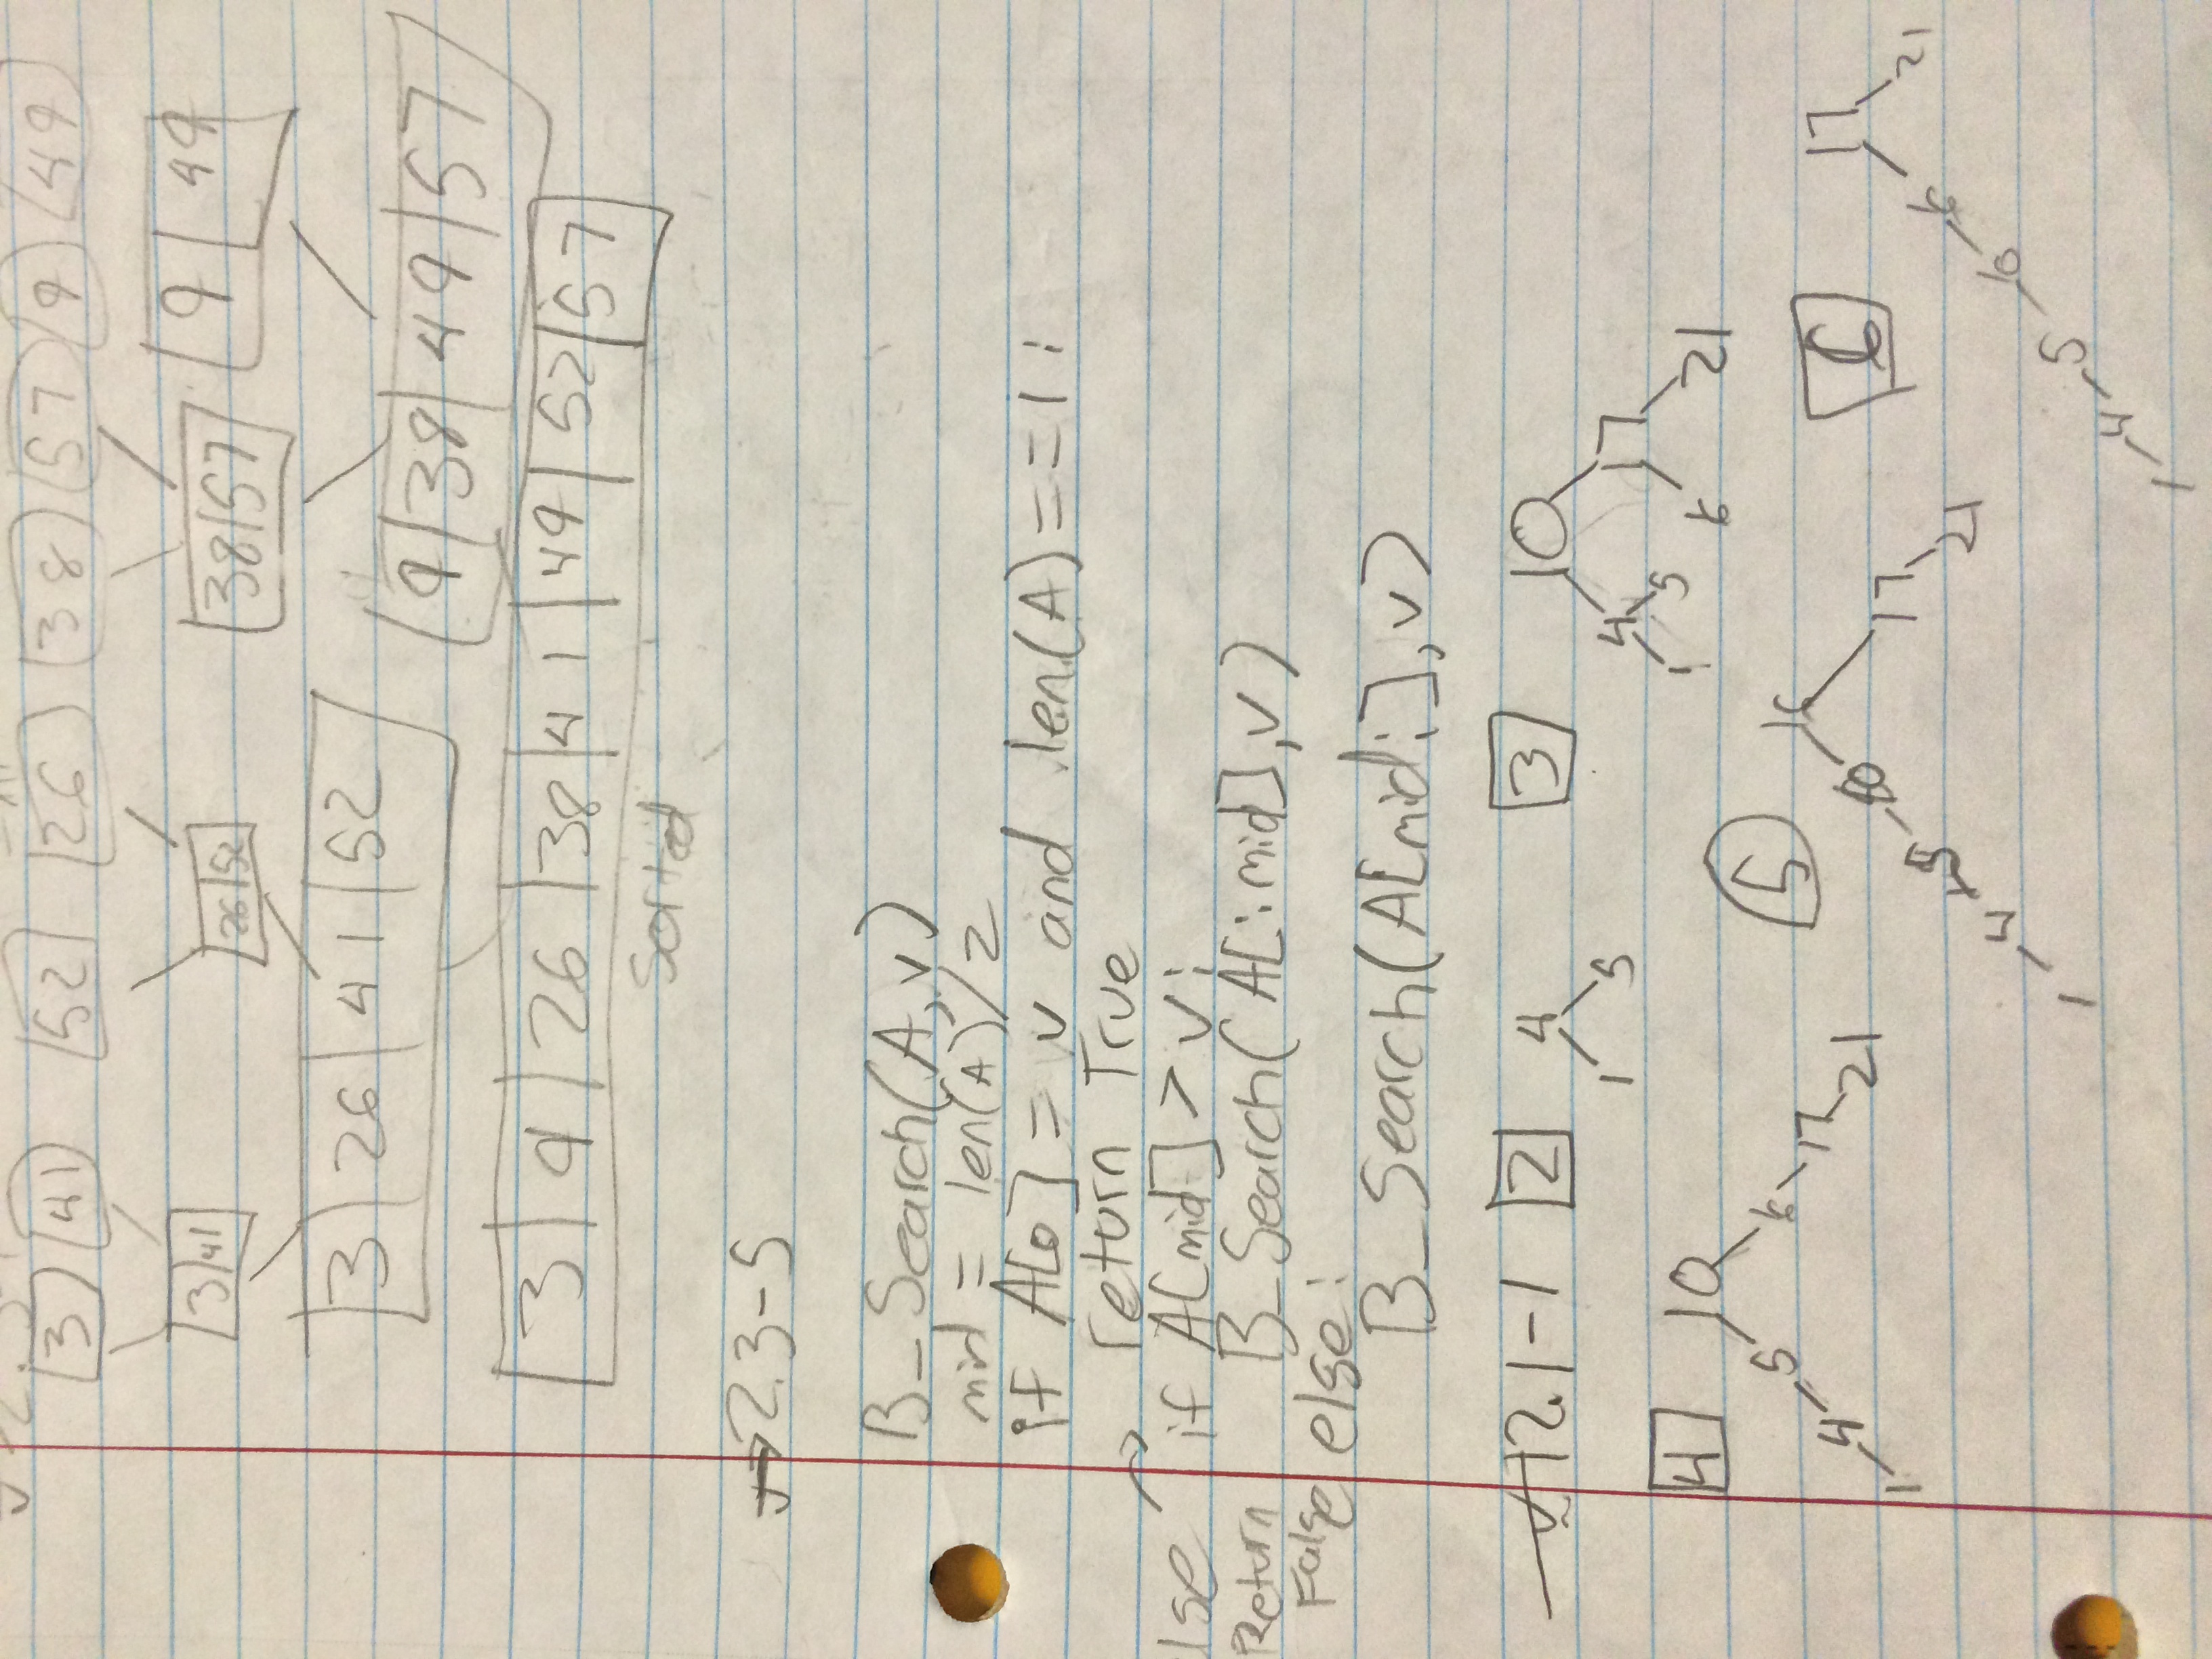 3 41 52 26 38 57 9 49
3 41 26 52 38 57 9 49
3 26 41 52
9 38 49 57
3 9 26 38 41 49 52 57
Sorted
→ 2.3-5
B_Search(A,v)
mid = len(A)/2
if A[0] = v and len(A)==1:
return True
if A[mid] > v:
B_Search(A[:mid],v)
lse
Return
False
else:
B_Search(A[mid:],v)
12.1-1
2
4
1 5
3
10
4 17
1 5 16 21
4
10
5 16
4 17
1 21
5
16
10 17
5 21
4
1
6
17
16 21
10
5
4
1